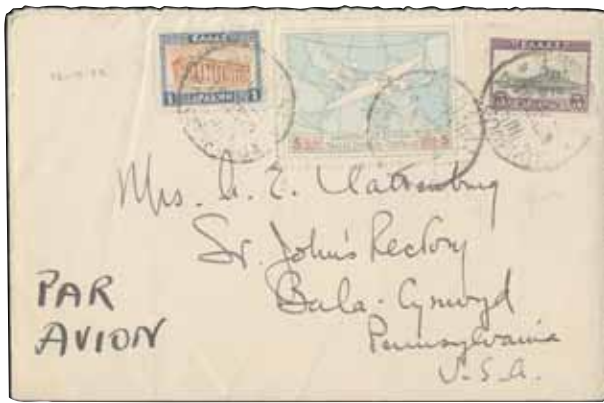 ΕΛΛΑΣ
ΕΛΛΑΣ
1 ΔΡΑΧΜΗ 1
Mrs. A. E. Clattenburg
St. John's Rectory
Bala-Cynwyd
Pennsylvania
U.S.A.
PAR
AVION